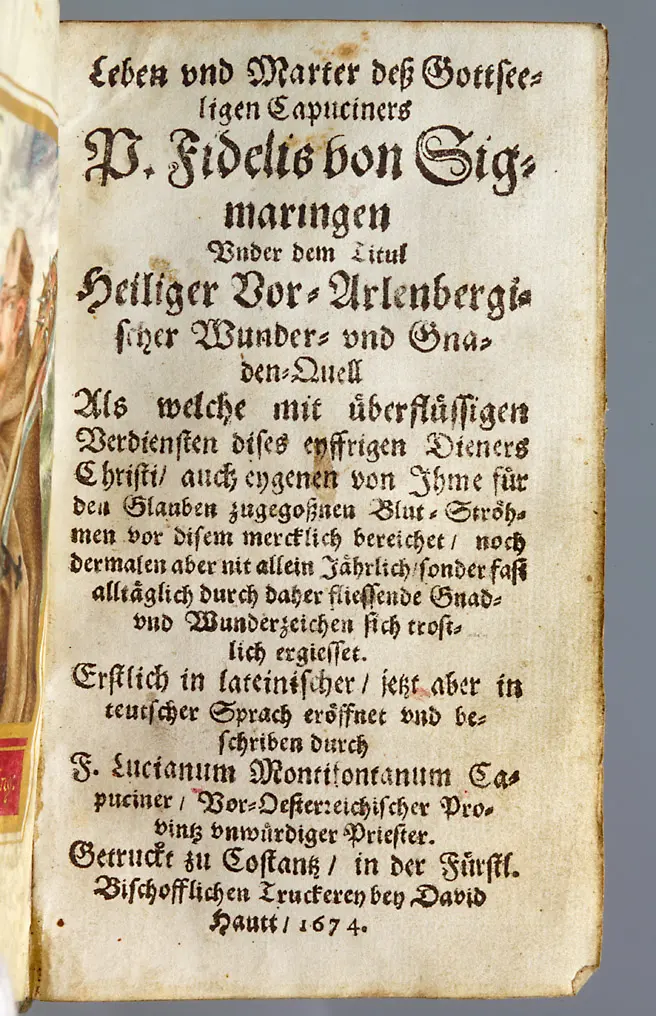 Leben vnd Marter deß Gottsee⸗
ligen Capuciners
P. Fidelis von Sig⸗
maringen
Vnder dem Titul
Heiliger Vor⸗ Arlenbergi⸗
scher Wunder⸗ vnd Gna⸗
den⸗Quell
Als welche mit überflüssigen
Verdiensten dises eyffrigen Dieners
Christi/ auch eygenen von Ihme für
den Glauben zugegoßnen Blut⸗ Ströh⸗
men vor disem mercklich bereichet/ noch
dermalen aber nit allein Jährlich/sonder fast
alltäglich durch daher fliessende Gnad⸗
vnd Wunderzeichen sich trost⸗
lich ergiesset.
Erstlich in lateinischer/ jetzt aber in
teutscher Sprach eröffnet vnd be⸗
schriben durch
F. Lucianum Montifontanum Ca⸗
puciner/ Vor⸗Oesterreichischer Pro⸗
vintz vnwürdiger Priester.
Getruckt zu Costantz/ in der Fürstl.
Bischofflichen Truckerey bey David
Hautt/ 1674.